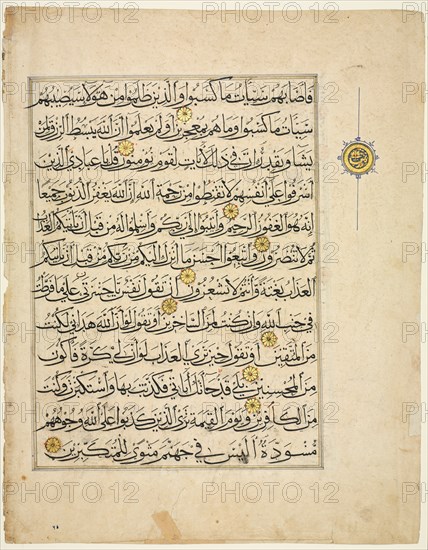 فاصابهم سيئات ما كسبوا والذين ظلموا من هؤلاء سيصيبهم
سيئات ما كسبوا وما هم بمعجزين اولم يعلموا ان الله يبسط الرزق لمن
يشاء ويقدر ان في ذلك لايات لقوم يؤمنون قل يا عبادي الذين
اسرفوا على انفسهم لا تقنطوا من رحمة الله ان الله يغفر الذنوب جميعا
انه هو الغفور الرحيم وانيبوا الى ربكم واسلموا له من قبل ان ياتيكم العذاب
ثم لا تنصرون واتبعوا احسن ما انزل اليكم من ربكم من قبل ان ياتيكم
العذاب بغتة وانتم لا تشعرون ان تقول نفس يا حسرتى على ما فرطت
في جنب الله وان كنت لمن الساخرين او تقول لو ان الله هداني لكنت
من المتقين او تقول حين ترى العذاب لو ان لي كرة فاكون
من المحسنين بلى قد جاءتك اياتي فكذبت بها واستكبرت وكنت
من الكافرين ويوم القيمة ترى الذين كذبوا على الله وجوههم
مسودة اليس في جهنم مثوى للمتكبرين
PHOTO12